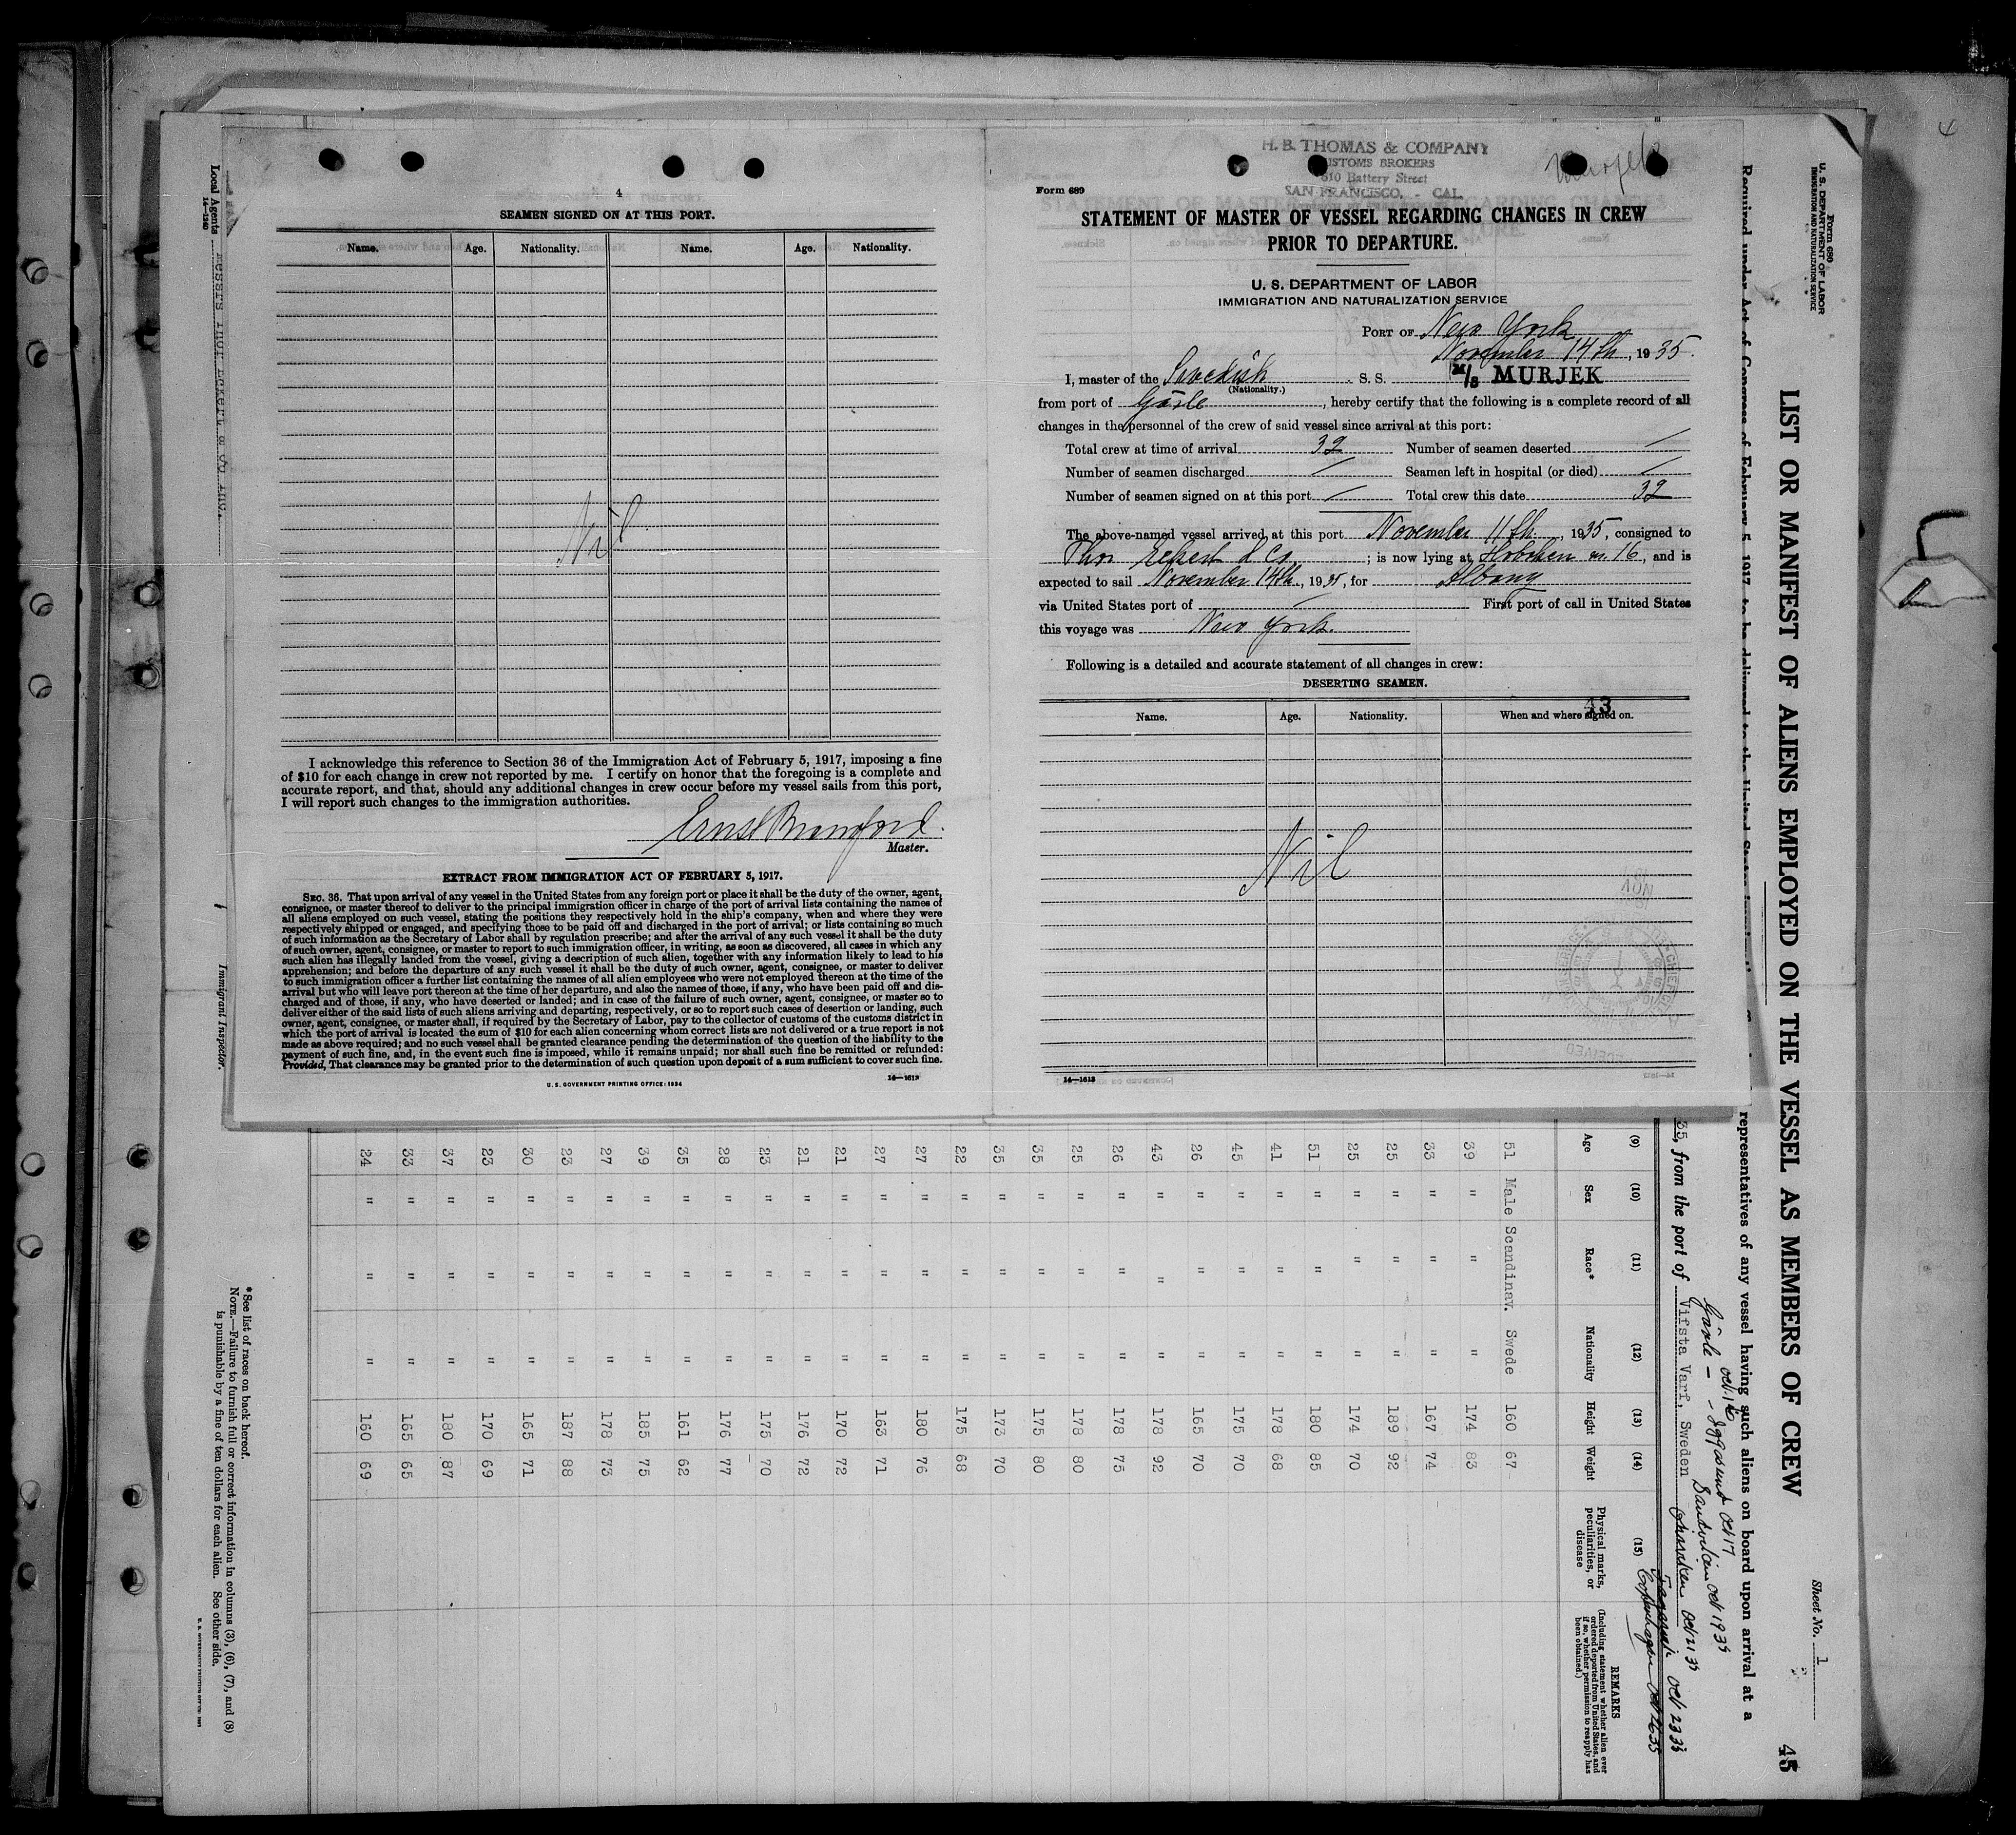 4
SEAMEN SIGNED ON AT THIS PORT.
Name. Age. Nationality. Name. Age. Nationality.
Nil
I acknowledge this reference to Section 36 of the Immigration Act of February 5, 1917, imposing a fine
of $10 for each change in crew not reported by me. I certify on honor that the foregoing is a complete and
accurate report, and that, should any additional changes in crew occur before my vessel sails from this port,
I will report such changes to the immigration authorities.
Master.
EXTRACT FROM IMMIGRATION ACT OF FEBRUARY 5, 1917.
SEC. 36. That upon arrival of any vessel in the United States from any foreign port or place it shall be the duty of the owner, agent,
consignee, or master thereof to deliver to the principal immigration officer in charge of the port of arrival lists containing the names of
all aliens employed on such vessel, stating the positions they respectively hold in the ship's company, when and where they were
respectively shipped or engaged, and specifying those to be paid off and discharged in the port of arrival; or lists containing so much
of such information as the Secretary of Labor shall by regulation prescribe; and after the arrival of any such vessel it shall be the duty
of such owner, agent, consignee, or master to report to such immigration officer, in writing, as soon as discovered, all cases in which any
such alien has illegally landed from the vessel, giving a description of such alien, together with any information likely to lead to his
apprehension; and before the departure of any such vessel it shall be the duty of such owner, agent, consignee, or master to deliver
to such immigration officer a further list containing the names of all alien employees who were not employed thereon at the time of the
arrival but who will leave port thereon at the time of her departure, and also the names of those, if any, who have been paid off and dis-
charged and of those, if any, who have deserted or landed; and in case of the failure of such owner, agent, consignee, or master so to
deliver either of the said lists of such aliens arriving and departing, respectively, or so to report such cases of desertion or landing, such
owner, agent, consignee, or master shall, if required by the Secretary of Labor, pay to the collector of customs of the customs district in
which the port of arrival is located the sum of $10 for each alien concerning whom correct lists are not delivered or a true report is not
made as above required; and no such vessel shall be granted clearance pending the determination of the question of the liability to the
payment of such fine, and, in the event such fine is imposed, while it remains unpaid; nor shall such fine be remitted or refunded:
Provided, That clearance may be granted prior to the determination of such question upon deposit of a sum sufficient to cover such fine.
U. S. GOVERNMENT PRINTING OFFICE: 1934 14—1613
H. B. THOMAS & COMPANY
CUSTOMS BROKERS
510 Battery Street
SAN FRANCISCO, - CAL.
Murjek
Form 689
STATEMENT OF MASTER OF VESSEL REGARDING CHANGES IN CREW
PRIOR TO DEPARTURE.
U. S. DEPARTMENT OF LABOR
IMMIGRATION AND NATURALIZATION SERVICE
PORT OF New York
November 14th, 1935.
I, master of the Swedish S. S. M/S MURJEK
(Nationality.)
from port of Gävle, hereby certify that the following is a complete record of all
changes in the personnel of the crew of said vessel since arrival at this port:
Total crew at time of arrival 32 Number of seamen deserted /
Number of seamen discharged / Seamen left in hospital (or died) /
Number of seamen signed on at this port / Total crew this date 32
The above-named vessel arrived at this port November 11th, 1935, consigned to
Thor Eckert & Co ; is now lying at Hoboken 16, and is
expected to sail November 14th, 1935, for Albany
via United States port of / First port of call in United States
this voyage was New York.
Following is a detailed and accurate statement of all changes in crew:
DESERTING SEAMEN.
43
Name. Age. Nationality. When and where signed on.
Nil
14—1613
Form 689
U. S. DEPARTMENT OF LABOR
IMMIGRATION AND NATURALIZATION SERVICE
Sheet No. 1
LIST OR MANIFEST OF ALIENS EMPLOYED ON THE VESSEL AS MEMBERS OF CREW 45
Required under Act of Congress of February 5, 1917, to be delivered to the United States
representatives of any vessel having such aliens on board upon arrival at a
Gävle – Oct. 16 – Iggesund Oct 17
Sandviken Oct 19 35
35, from the port of Vifsta Varf, Sweden Oct 21 35 Oct 23 35
Copenhagen Oct 26 35
(9) (10) (11) (12) (13) (14) (15)
Age Sex Race* Nationality Height Weight Physical marks, peculiarities, or disease
REMARKS
(Including statement whether alien ever ordered deported from United States, and if so, whether permission to reapply has been obtained.)
51 Male Scandinav. Swede 160 67
39 " " " 174 83
33 " " " 167 74
25 " " " 189 92
25 " " " 174 70
51 " " " 180 85
41 " " " 178 68
45 " " " 175 70
26 " " " 165 70
43 " " " 178 92
26 " " " 178 75
25 " " " 178 80
35 " " " 175 80
35 " " " 173 70
22 " " " 175 68
27 " " " 180 76
27 " " " 163 71
21 " " " 170 72
21 " " " 176 72
23 " " " 175 70
28 " " " 176 77
35 " " " 161 62
39 " " " 185 75
27 " " " 178 73
23 " " " 187 88
30 " " " 165 71
23 " " " 170 69
37 " " " 180 87
33 " " " 165 65
24 " " " 160 69
*See list of races on back hereof.
NOTE.—Failure to furnish full or correct information in columns (3), (6), (7), and (8)
is punishable by a fine of ten dollars for each alien. See other side.
Local Agents Messrs Thor Eckert & Co Inc.
14—1240
Immigrant Inspector.
4